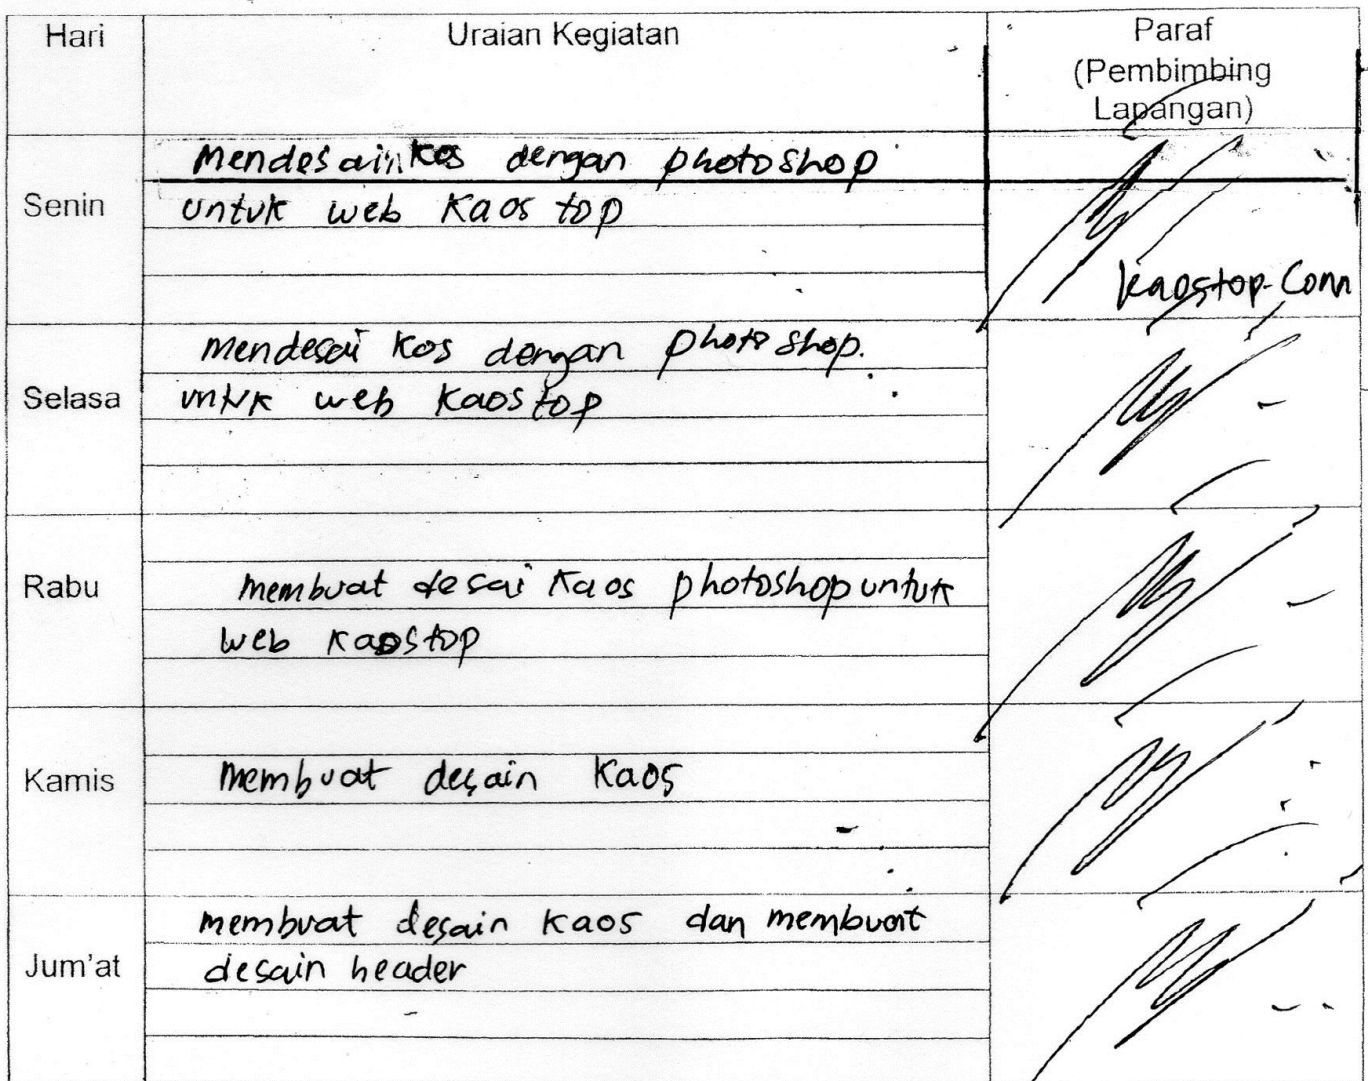 Hari Uraian Kegiatan Paraf
(Pembimbing
Lapangan)
Mendesain kos dengan photoshop
Senin untuk web Kaos top
kaostop.Com
mendesai kos dengan photo shop.
Selasa untuk web kaos top
Rabu membuat desai kaos photoshop untuk
web kaostop
Kamis membuat desain kaos
membuat desain kaos dan membuat
Jum'at desain header